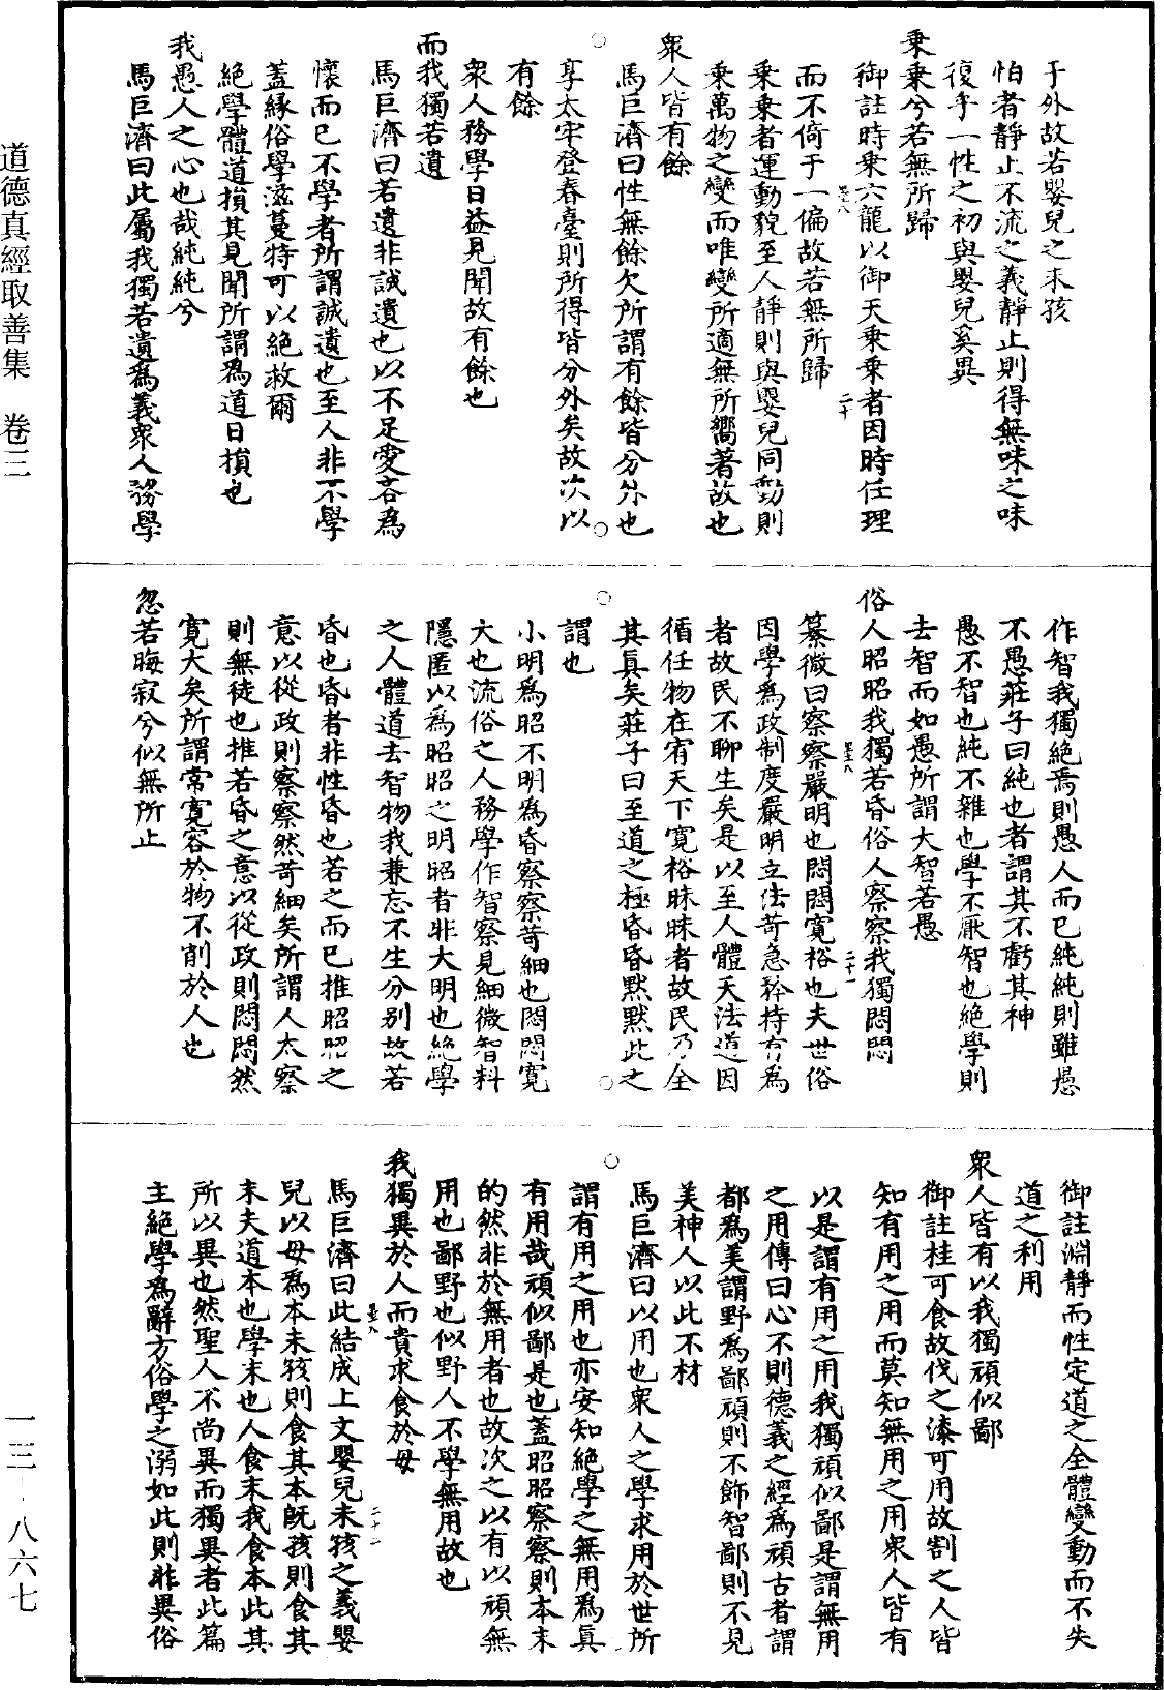 于外故若嬰兒之未孩
怕者靜止不流之義靜止則得無味之味
復乎一性之初與嬰兒奚異
乗乗兮若無所歸
御註時乗六龍以御天乗乗者因時任理
而不倚于一偏故若無所歸
乗乗者運動貌至人靜則與嬰兒同動則
乗萬物之變而唯變所適無所嚮著故也
衆人皆有餘
馬巨濟曰性無餘欠所謂有餘皆分外也
享太牢登春臺則所得皆分外矣故次以
有餘
衆人務學日益見聞故有餘也
而我獨若遺
馬巨濟曰若遺非誠遺也以不足愛吝為
懷而已不學者所謂誠遺也至人非不學
蓋緣俗學滋蔓特可以絶救爾
絶學體道損其見聞所謂為道日損也
我愚人之心也哉純純兮
馬巨濟曰此屬我獨若遺為義衆人務學
作智我獨絶焉則愚人而已純純則雖愚
不愚莊子曰純也者謂其不虧其神
愚不智也純不雜也學不厭智也絶學則
去智而如愚所謂大智若愚
俗人昭昭我獨若昏俗人察察我獨悶悶
纂微曰察察嚴明也悶悶寬裕也夫世俗
因學為政制度嚴明立法苛急矜持有為
者故民不聊生矣是以至人體天法道因
循任物在宥天下寬裕昧昧者故民乃全
其真矣莊子曰至道之極昏昏默默此之
謂也
小明為昭不明為昏察察苛細也悶悶寬
大也流俗之人務學作智察見細微智料
隱匿以為昭昭之明昭者非大明也絶學
之人體道去智物我兼忘不生分别故若
昏也昏者非性昏也若之而已推昭昭之
意以從政則察察然苛細矣所謂人太察
則無徒也推若昏之意以從政則悶悶然
寬大矣所謂常寬容於物不削於人也
忽若晦寂兮似無所止
御註淵靜而性定道之全體變動而不失
道之利用
衆人皆有以我獨頑似鄙
御註桂可食故伐之漆可用故割之人皆
知有用之用而莫知無用之用衆人皆有
以是謂有用之用我獨頑似鄙是謂無用
之用傳曰心不則德義之經為頑古者謂
都為美謂野為鄙頑則不飾智鄙則不見
美神人以此不材
馬巨濟曰以用也衆人之學求用於世所
謂有用之用也亦安知絶學之無用為真
有用哉頑似鄙是也蓋昭昭察察則本末
的然非於無用者也故次之以有以頑無
用也鄙野也似野人不學無用故也
我獨異於人而貴求食於母
馬巨濟曰此結成上文嬰兒未孩之義嬰
兒以母為本未孩則食其本既孩則食其
末夫道本也學末也人食末我食本此其
所以異也然聖人不尚異而獨異者此篇
主絶學為辭方俗學之溺如此則非異俗
道德真經取善集　卷三
一三－八六七